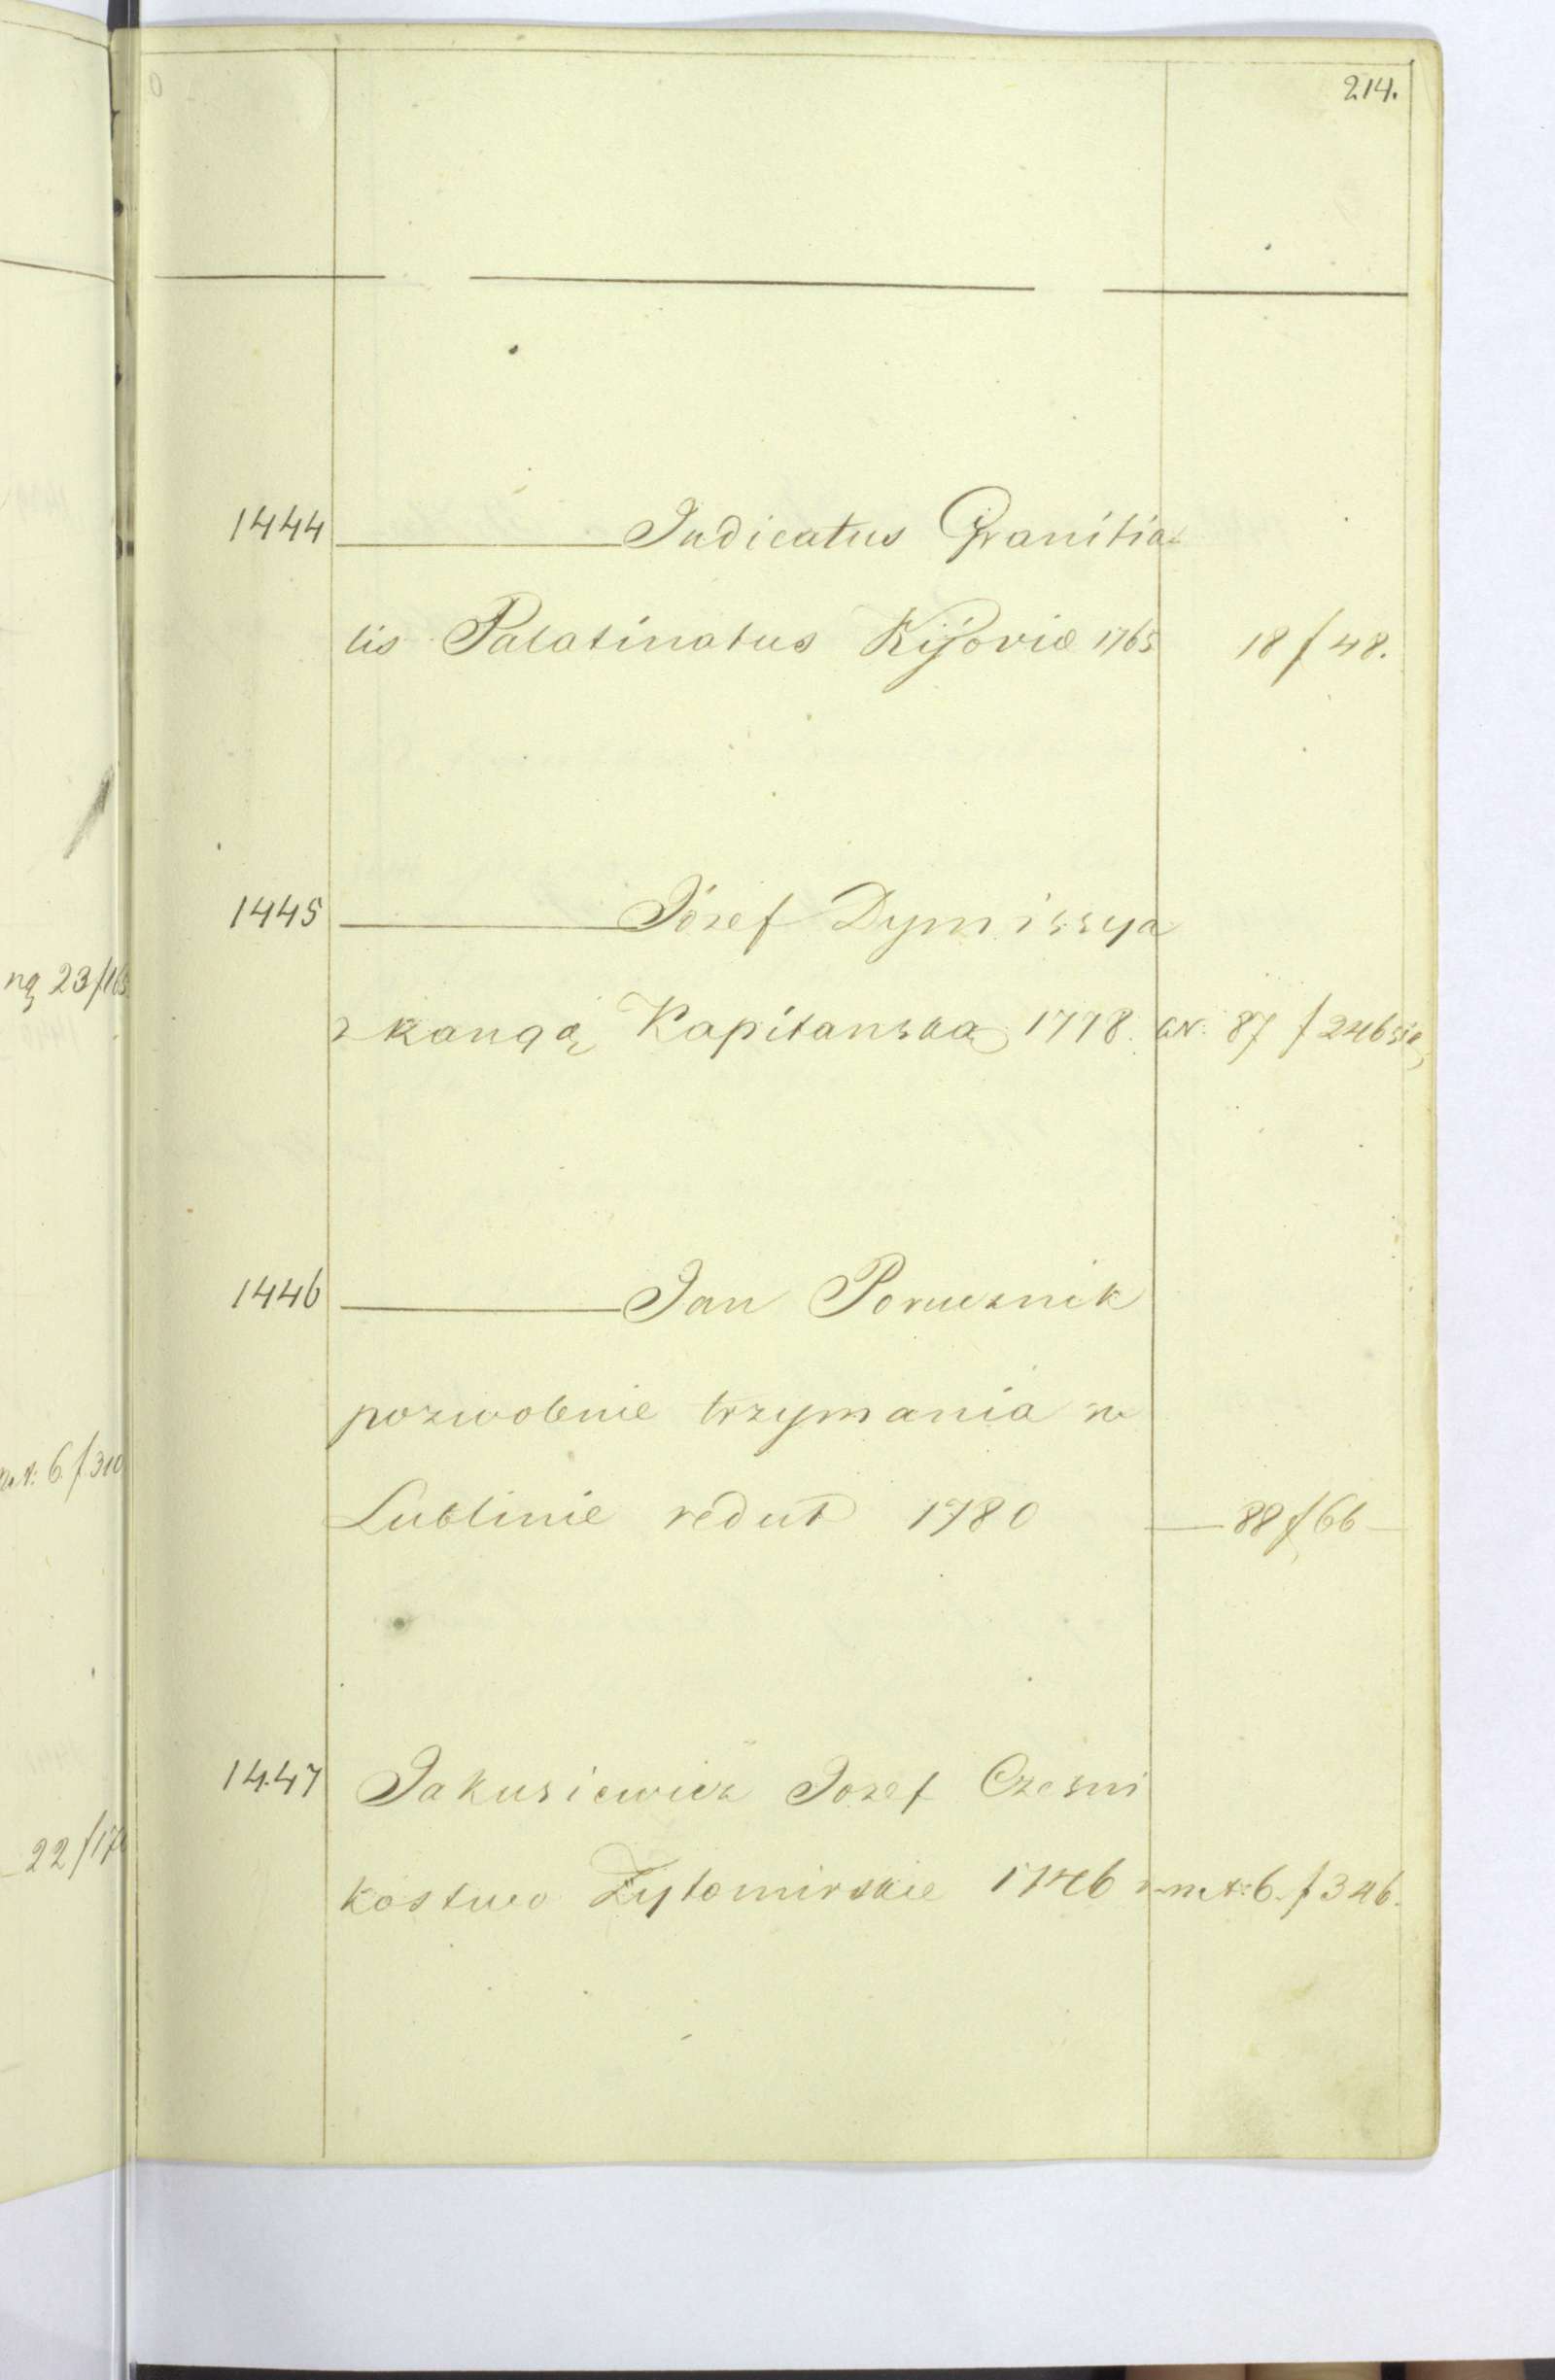 214.
1444 Judicatus Granitia
lis Palatinatus Kijoviæ 1765 18 f 48.
1445 Józef Dymissya
z rangą Kapitanską 1778. kN: 87 f 246
1446 Jan Porucznik
pozwolenie trzymania w
Lublinie redut 1780 88 f 66
1447 Jakusiewicz Jozef Czesni
kostwo Żytomirskie 1746 6. f 346.
ną 23 f
6 f 310
22 f